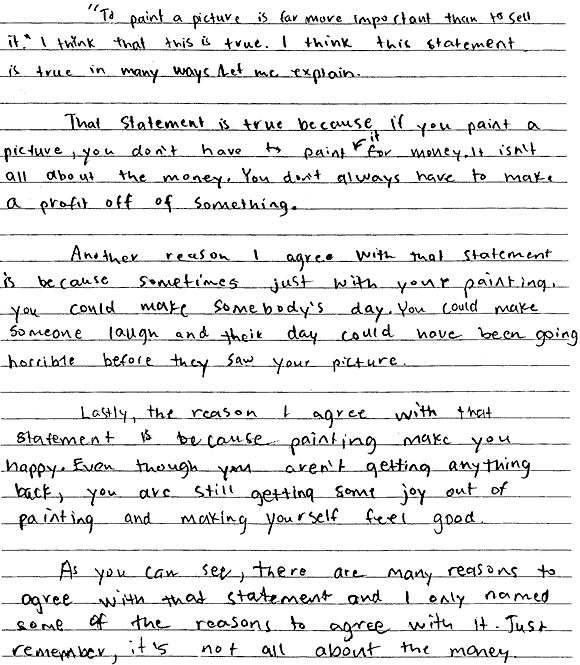 "To paint a picture is far more important than to sell
it." I think that this is true. I think this statement
is true in many ways. Let me explain.
That statement is true because if you paint a
picture, you don't have to paint it for money. It isn't
all about the money. You don't always have to make
a profit off of something.
Another reason I agree with that statement
is because sometimes just with your painting,
you could make somebody's day. You could make
someone laugh and their day could have been going
horrible before they saw your picture.
Lastly, the reason I agree with that
statement is because painting make you
happy. Even though you aren't getting anything
back, you are still getting some joy out of
painting and making yourself feel good.
As you can see, there are many reasons to
agree with that statement and I only named
some of the reasons to agree with it. Just
remember, it's not all about the money.